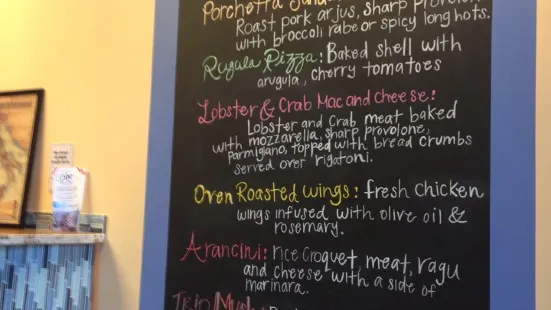 Porchetta
Roast pork arjus, sharp
with broccoli rabe or spicy long hots.
Rugula Pizza: Baked shell with
arugula, cherry tomatoes
Lobster & Crab Mac and Cheese:
Lobster and Crab meat baked
with mozzarella, sharp provolone,
Parmigiano, topped with bread crumbs
served over rigatoni.
Oven Roasted Wings: fresh chicken
wings infused with olive oil &
rosemary.
Arancini: rice croquet, meat, ragu
and cheese with a side of
marinara.
TRIO